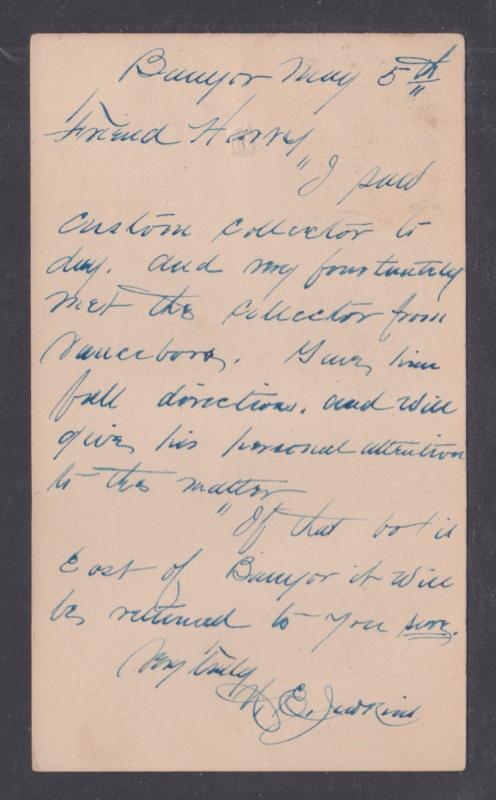 Bangor May 5th
Friend Harry
"I saw
Custom Collector to
day. and very fourtuntely
met the Collector from
Vanceboro. Gave him
full directions. and will
give his personal attention
to the matter
"If that is
East of Bangor it will
be returned to you sure.
Very truly
E. Judkins